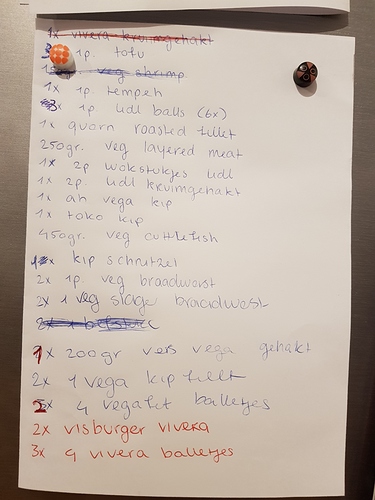 1x vivera kruimgehakt
3 1p. tofu
veg shrimp
1x 1p. tempeh
3x 1p lidl balls (6x)
1x quorn roasted fillet
250gr. veg layered meat
1x 2p wokstukjes lidl
1x 2p. lidl kruimgehakt
1x ah vega kip
1x toko kip
450gr. veg cuttlefish
1x kip schnitzel
2x 1p veg braadworst
2x 1 veg slage braadwost
1x 200gr vers vega gehakt
2x 1 vega kip filet
2x 4 vegafit balletjes
2x visburger vivera
3x 9 vivera balletjes